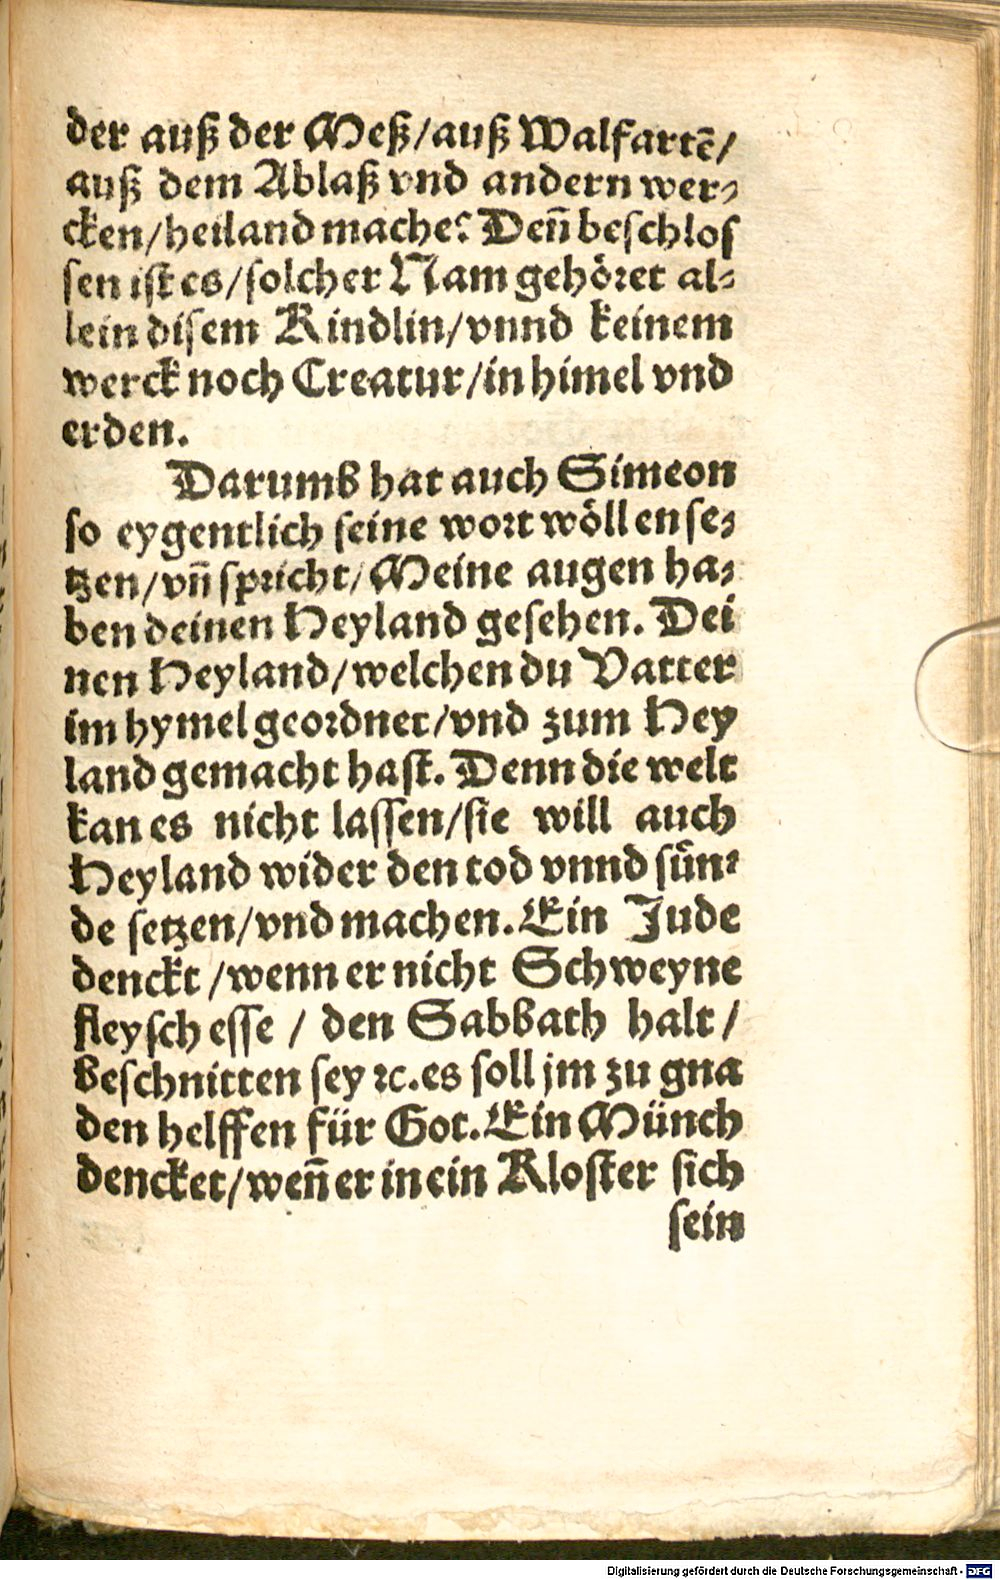 der auß der Meß/auß Walfartē/
auß dem Ablaß vnd andern wer⸗
cken/heiland mache? Deñ beschlos
sen ist es/solcher Nam gehöret al⸗
lein disem Kindlin/vnnd keinem
werck noch Creatur/in himel vnd
erden.
Darumb hat auch Simeon
so eygentlich seine wort wöllen se⸗
tzen/vñ spricht/Meine augen ha⸗
ben deinen Heyland gesehen. Dei
nen Heyland/welchen du Vatter
im hymel geordnet/vnd zum Hey
land gemacht hast. Denn die welt
kan es nicht lassen/sie will auch
Heyland wider den tod vnnd sün⸗
de setzen/vnd machen. Ein Jude
denckt/wenn er nicht Schweyne
fleysch esse / den Sabbath halt/
beschnitten sey ꝛc. es soll jm zu gna
den helffen für Got. Ein Münch
dencket/weñ er in ein Kloster sich
sein
Digitalisierung gefördert durch die Deutsche Forschungsgemeinschaft - DFG